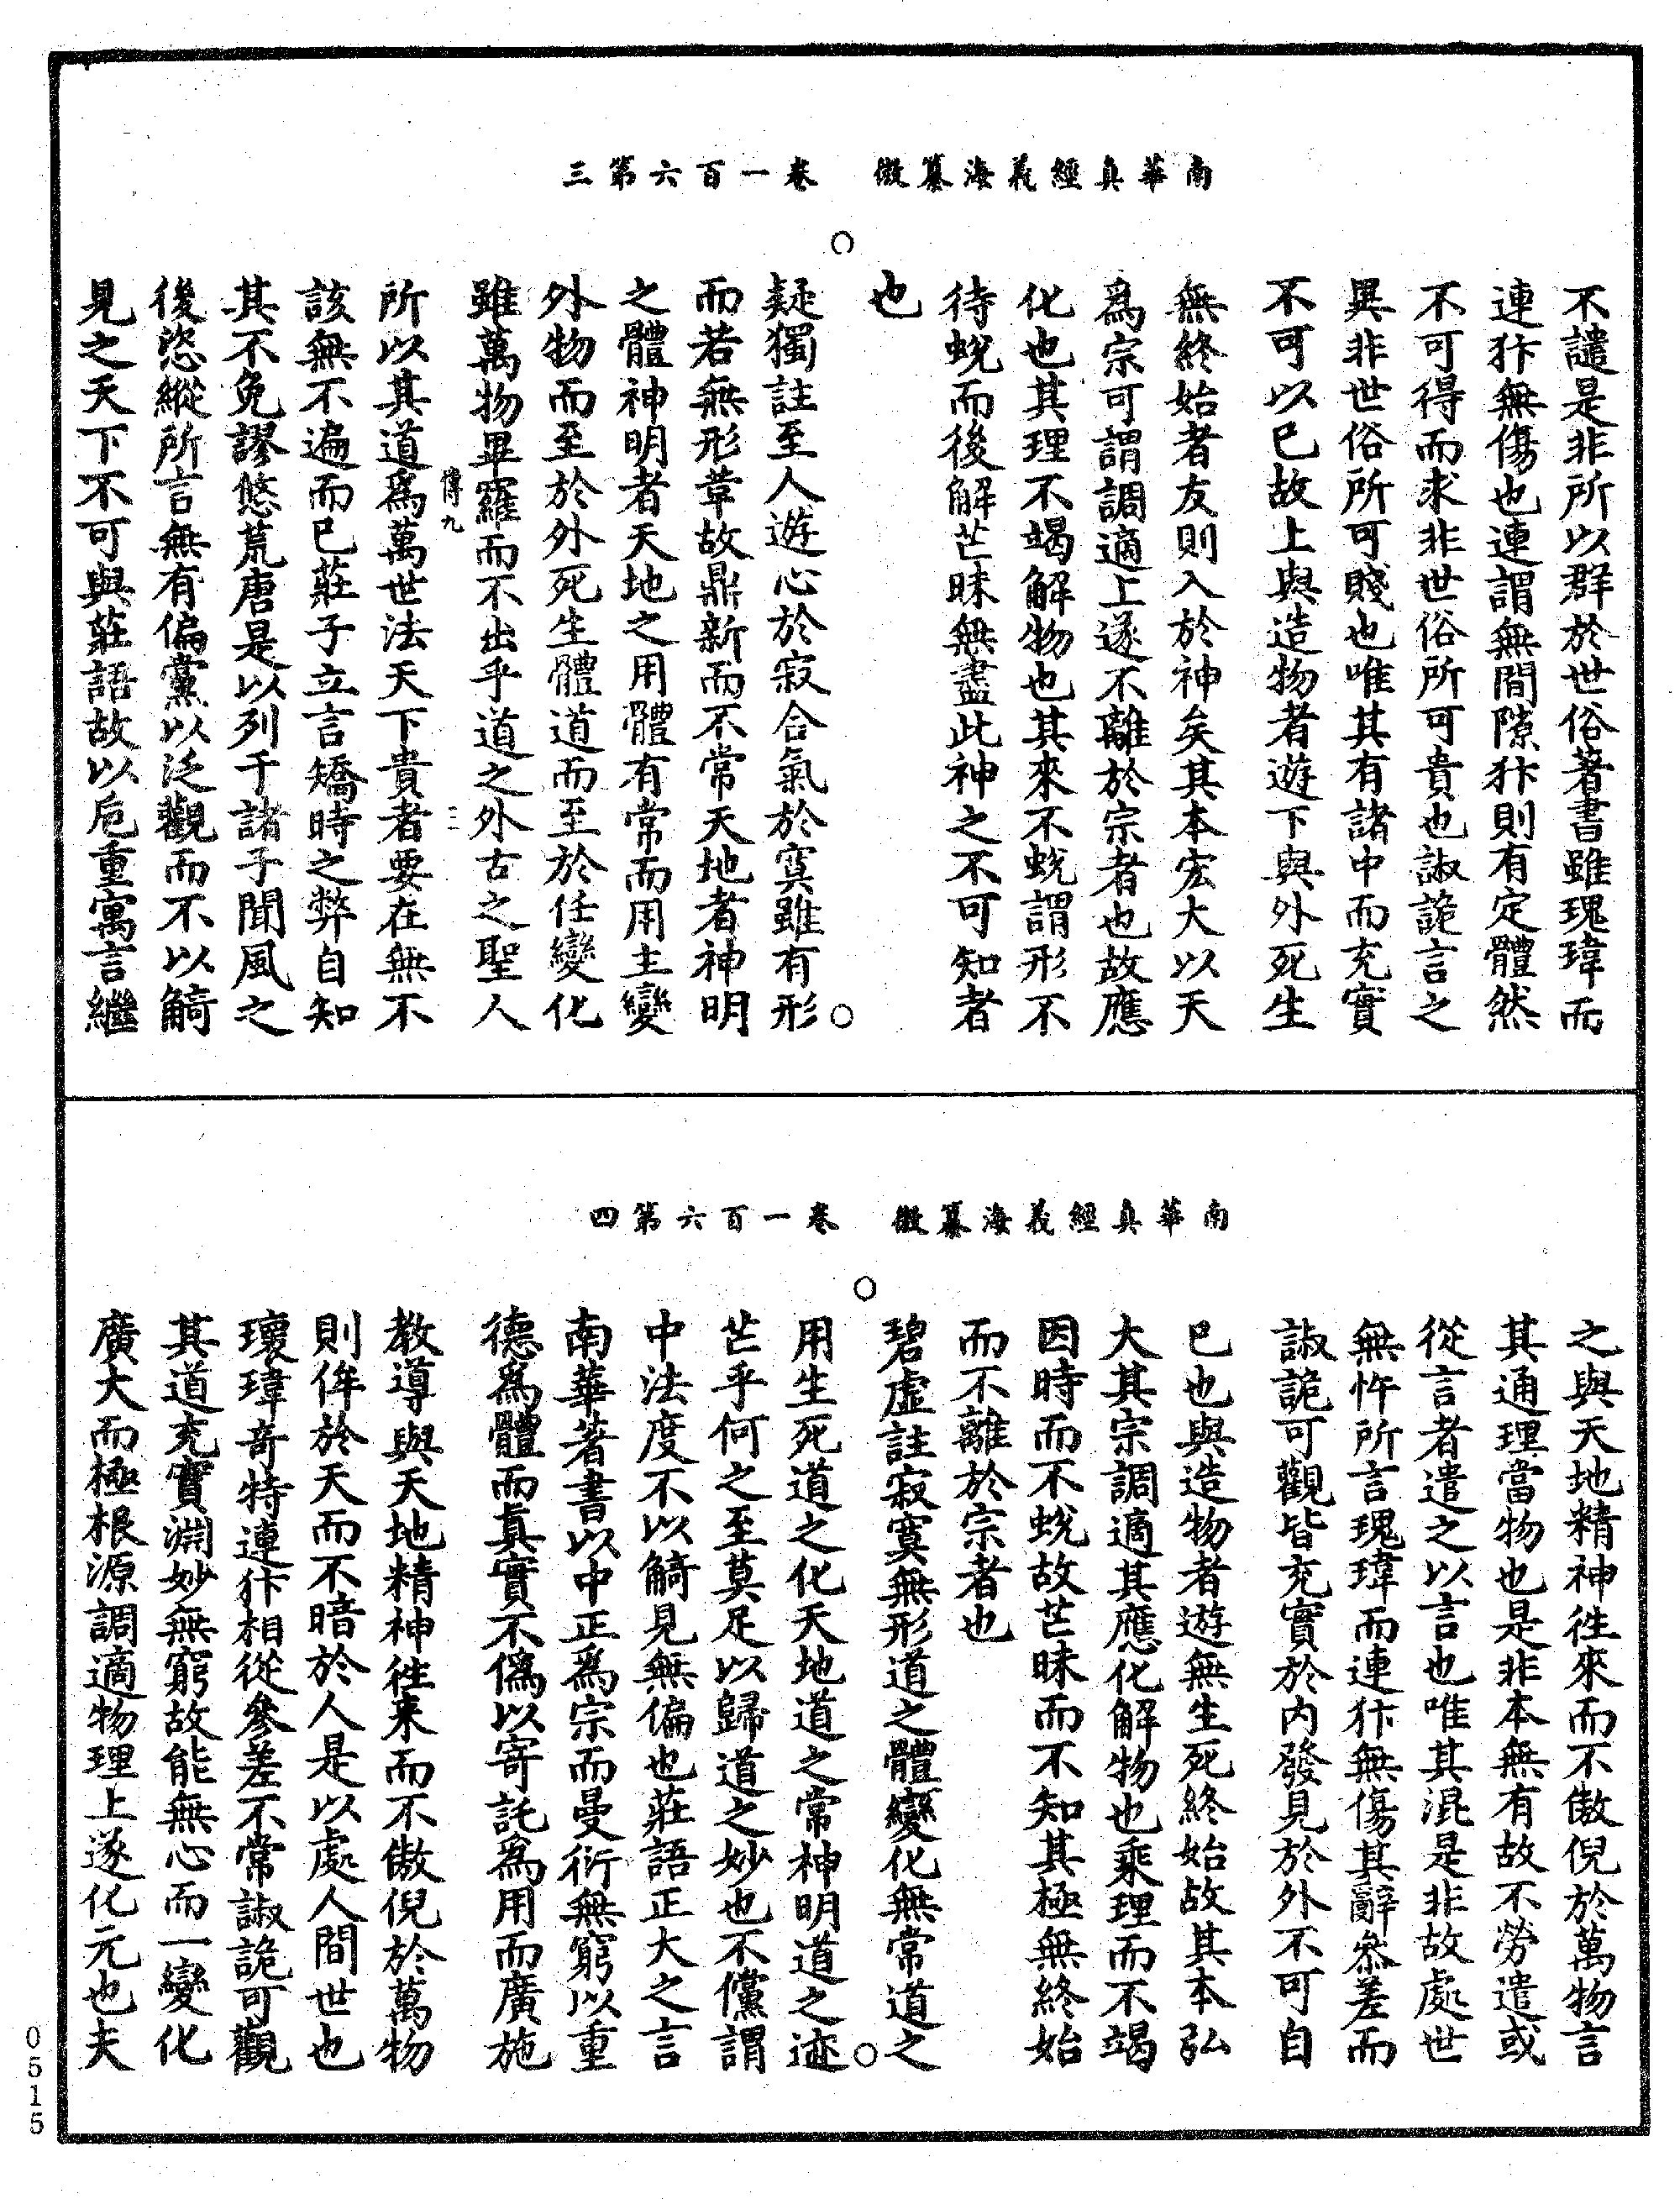 南華真經義海纂微　卷一百六第三
不譴是非所以群於世俗著書雖瑰瑋而
連犿無傷也連謂無間隙犿則有定體然
不可得而求非世俗所可貴也諔詭言之
異非世俗所可賤也唯其有諸中而充實
不可以已故上與造物者遊下與外死生
無終始者友則入於神矣其本宏大以天
為宗可謂調適上遂不離於宗者也故應
化也其理不竭解物也其來不蛻謂形不
待蛻而後解芒昧無盡此神之不可知者
也
疑獨註至人遊心於寂合氣於寞雖有形
而若無形章故鼎新而不常天地者神明
之體神明者天地之用體有常而用主變
外物而至於外死生體道而至於任變化
雖萬物畢羅而不出乎道之外古之聖人
傳九
三
所以其道為萬世法天下貴者要在無不
該無不遍而已莊子立言矯時之弊自知
其不免謬悠荒唐是以列于諸子聞風之
後恣縱所言無有偏黨以泛觀而不以觭
見之天下不可與莊語故以卮重寓言繼
南華真經義海纂微　卷一百六第四
之與天地精神徃來而不傲倪於萬物言
其通理當物也是非本無有故不勞遣或
從言者遣之以言也唯其混是非故處世
無忤所言瑰瑋而連犿無傷其辭叅差而
諔詭可觀皆充實於内發見於外不可自
已也與造物者遊無生死終始故其本弘
大其宗調適其應化解物也乘理而不竭
因時而不蛻故芒昧而不知其極無終始
而不離於宗者也
碧虛註寂寞無形道之體變化無常道之
用生死道之化天地道之常神明道之迹
芒乎何之至莫足以歸道之妙也不儻謂
中法度不以觭見無偏也莊語正大之言
南華著書以中正為宗而曼衍無窮以重
德為體而真實不偽以寄託為用而廣施
教導與天地精神徃来而不傲倪於萬物
則侔於天而不暗於人是以處人間世也
瓌瑋奇特連犿相從參差不常諔詭可觀
其道充實淵妙無窮故能無心而一變化
廣大而極根源調適物理上遂化元也夫
0515